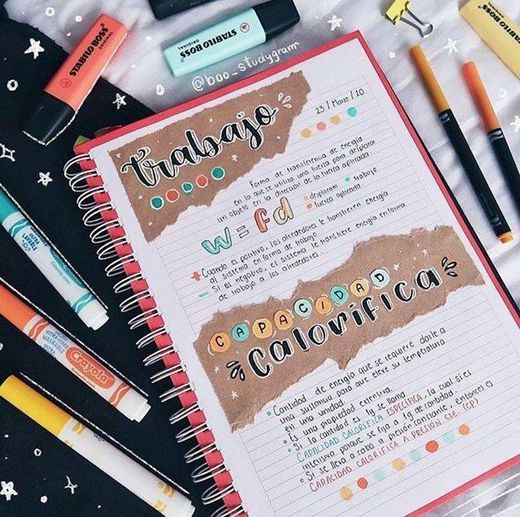 STABILO BOSS
STABILO BOSS
ORIGINAL
@boo_studygram
trabajo
23 / Marzo / 20
Forma de transferencia de energía
en la que se utilizó una fuerza para desplazar
un objeto en la dirección de la fuerza aplicada
W = Fd
desplazam.
fuerza aplicada
trabajo
+ Cuando es positivo, los alrededores le transfieren energía
al sistema en forma de trabajo
- Si es negativo, el sistema le transfiere energía en forma
de trabajo a los alrededores
CAPACIDAD
Calorífica
Cantidad de energía que se requiere darle a
una sustancia para que eleve su temperatura
en una unidad
Es una propiedad extensiva
Si la cantidad es 1g se llama
CAPACIDAD CALORÍFICA ESPECÍFICA, la cual si es
intensiva porque se fija a 1g de cantidad
Si se lleva a cabo a presión constante, entonces
CAPACIDAD CALORÍFICA A PRESIÓN CTE. (CP)
Crayola